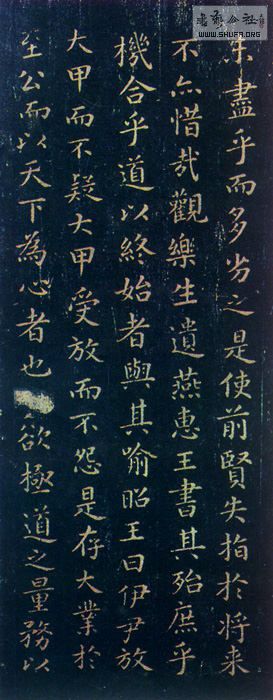 未盡乎而多劣之是使前賢失指於将来
不亦惜哉觀樂生遺燕惠王書其殆庶乎
機合乎道以終始者與其喻昭王曰伊尹放
大甲而不疑大甲受放而不怨是存大業於
至公而以天下為心者也欲極道之量務以
書法
公社
WWW.SHUFA.ORG